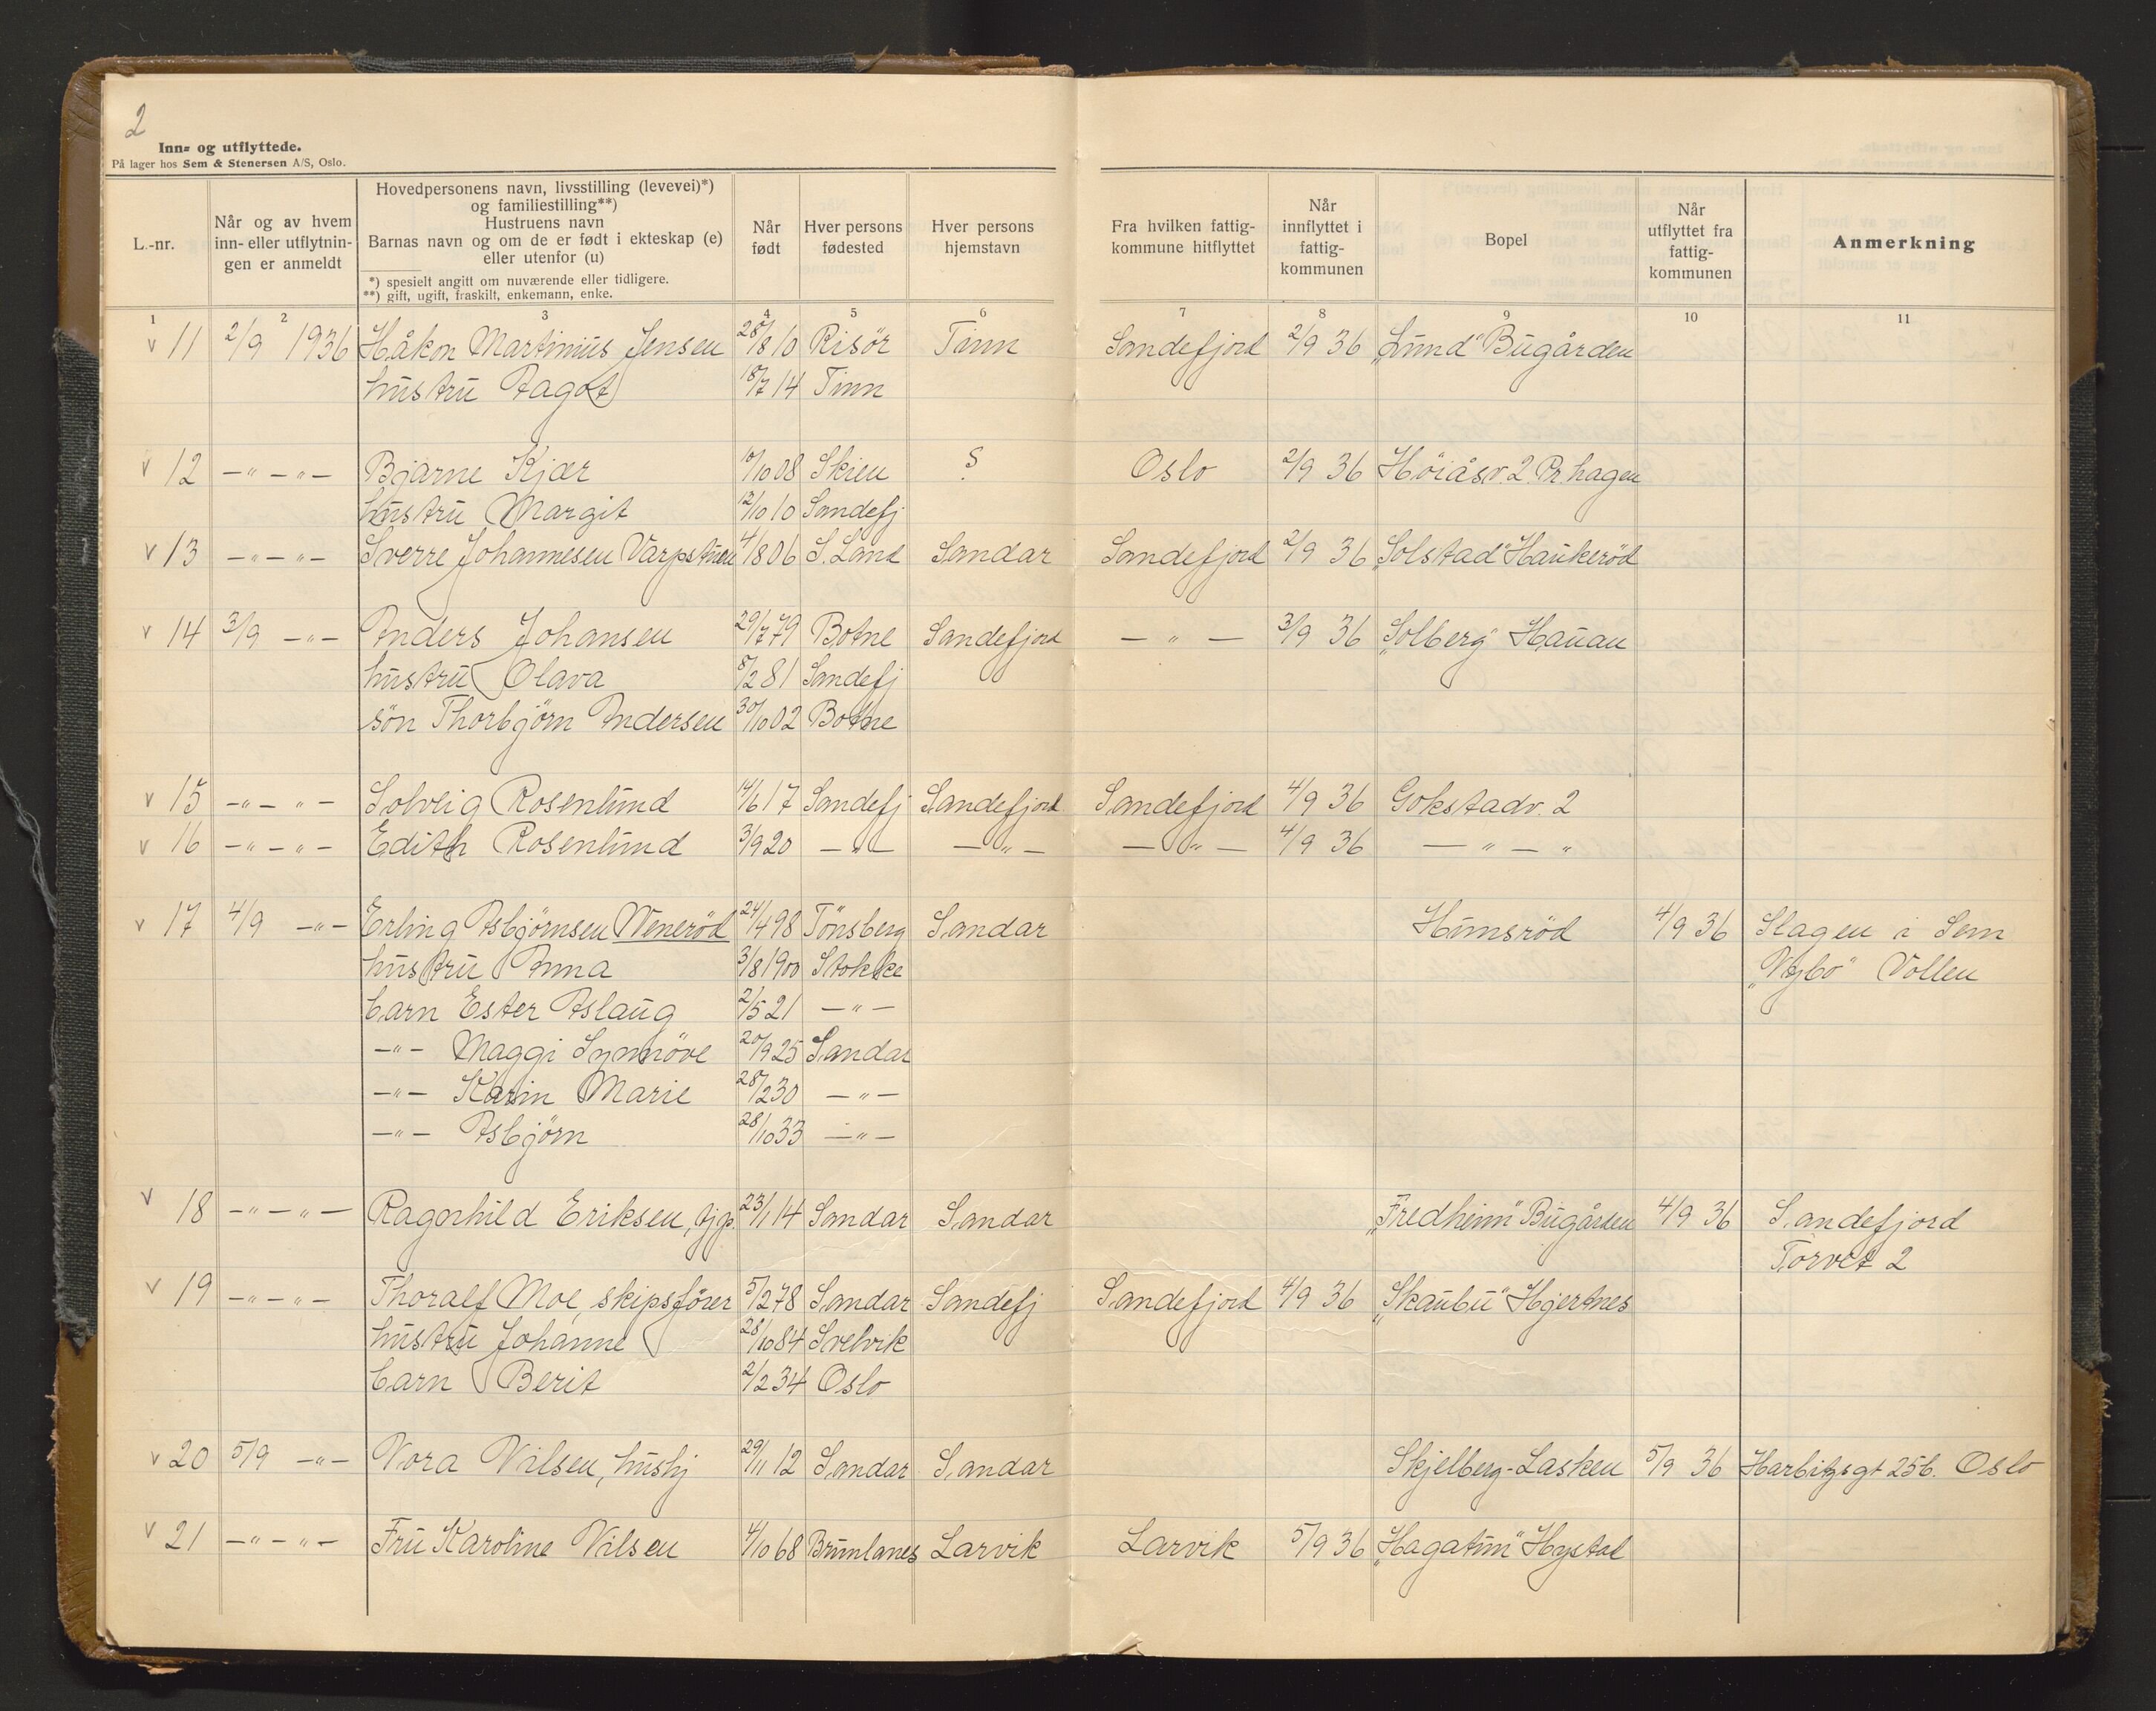 2
Inn- og utflyttede.
På lager hos Sem & Stenersen A/S, Oslo.
L.-nr.
Når og av hvem inn- eller utflytningen er anmeldt
Hovedpersonens navn, livsstilling (levevei)*)
og familiestilling**)
Hustruens navn
Barnas navn og om de er født i ekteskap (e)
eller utenfor (u)
*) spesielt angitt om nuværende eller tidligere.
**) gift, ugift, fraskilt, enkemann, enke.
Når født
Hver persons fødested
Hver persons hjemstavn
Fra hvilken fattigkommune hitflyttet
Når innflyttet i fattigkommunen
Bopel
Når utflyttet fra fattigkommunen
Anmerkning
1 2 3 4 5 6 7 8 9 10 11
v 11 2/9 1936 Håkon Martinius Jensen 28/8 10 Risör Tinn Sandefjord 2/9 36 „Lund" Bugården
hustru Aagot 18/7 14 Tinn
v 12 —"—"— Bjarne Kjær 10/10 08 Skien ? Oslo 2/9 36 Höiåsv. 2. Pr. hagen
hustru Margit 12/10 10 Sandefj
v 13 —"—"— Sverre Johannesen Varpstuen 4/8 06 S. Land Sandar Sandefjord 2/9 36 „Solstad" Haukeröd
v 14 3/9 —"— Anders Johansen 29/7 79 Botne Sandefjord —"— 3/9 36 „Solberg" Hauan
hustru Olava 8/2 81 Sandefj
sön Thorbjörn Andersen 30/10 02 Botne
v 15 —"—"— Solveig Rosenlund 14/6 17 Sandefj Sandefjord Sandefjord 4/9 36 Gokstadv. 2
v 16 —"—"— Edith Rosenlund 3/9 20 —"— —"— —"— 4/9 36 —"—"
v 17 4/9 —"— Erling Asbjörnsen Weneröd 24/4 98 Tönsberg Sandar Himsröd 4/9 36 Slagen i Sem
hustru Anna 3/8 1900 Stokke „Nybo" Vollen
barn Ester Aslaug 2/5 21 —"—
—"— Maggi Synnöve 20/9 25 Sandar
—"— Karin Marie 28/2 30 —"—
—"— Asbjörn 28/10 33 —"—
v 18 —"—"— Ragnhild Eriksen, tjp. 23/1 14 Sandar Sandar „Fredheim" Bugården 4/9 36 Sandefjord
Torvet 2
v 19 —"—"— Thoralf Moe, skipsförer 5/2 78 Sandar Sandefj Sandefjord 4/9 36 „Skaubu" Hjertnes
hustru Johanne 28/10 84 Svelvik
barn Berit 2/2 34 Oslo
v 20 5/9 —"— Nora Nilsen, hushj 29/11 12 Sandar Sandar Skjelberg-Lasken 5/9 36 Harbitzgt 25b. Oslo
v 21 —"—"— Fru Karoline Nilsen 4/10 68 Brunlanes Larvik Larvik 5/9 36 „Hagatun" Hystad